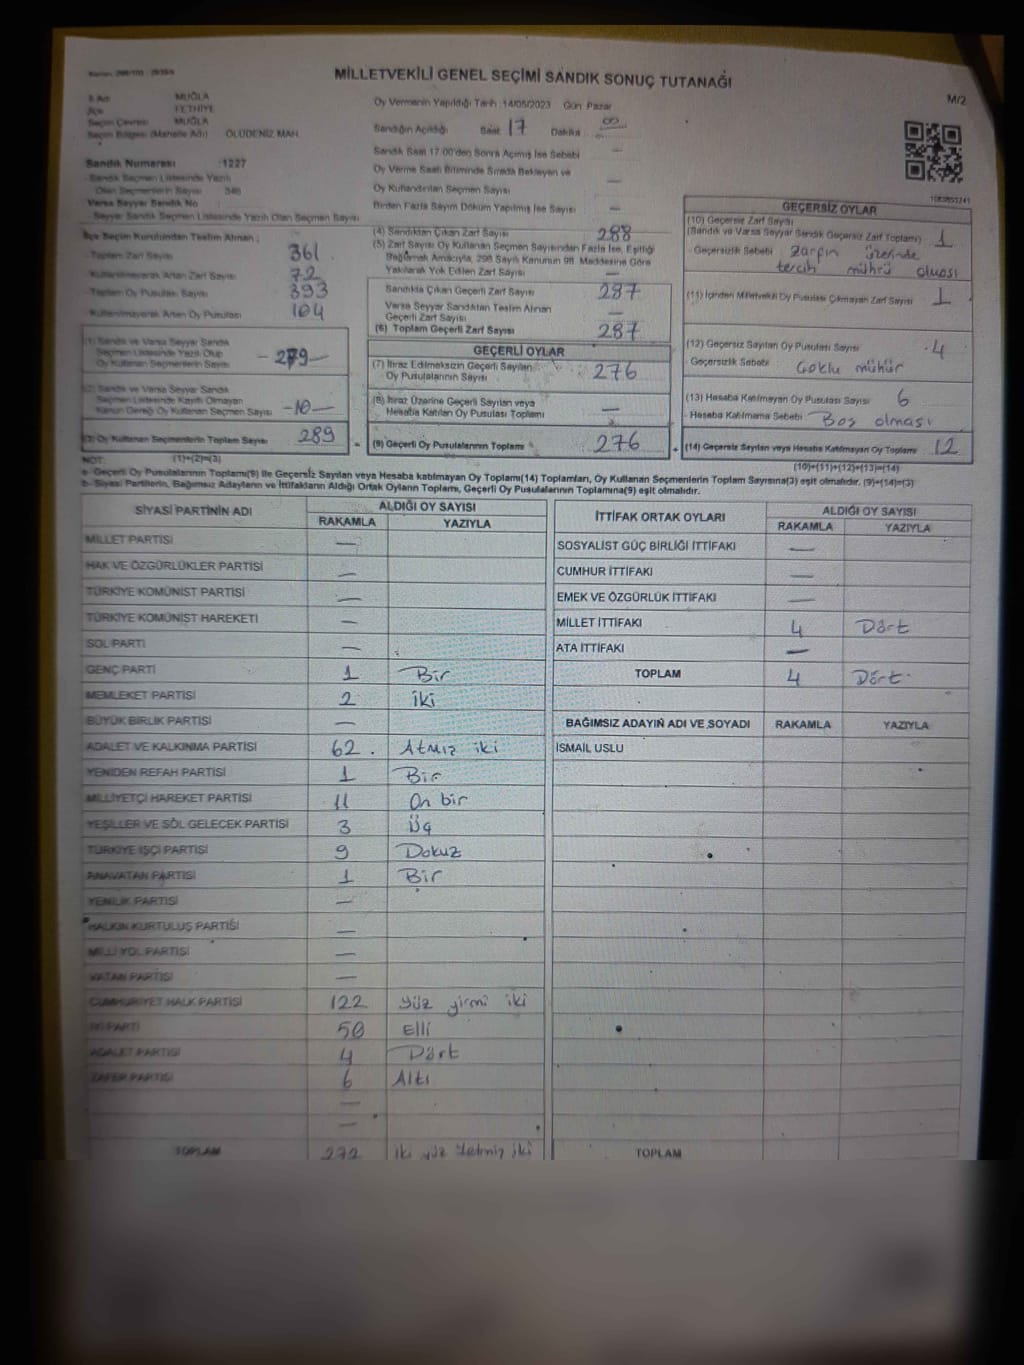 MİLLETVEKİLİ GENEL SEÇİMİ SANDIK SONUÇ TUTANAĞI
M/2
İli Adı MUĞLA
İlçe FETHİYE
Seçim Çevresi MUĞLA
Seçim Bölgesi (Mahalle Adı) ÖLÜDENİZ MAH.
Sandık Numarası :1227
Sandık Seçmen Listesinde Yazılı
Olan Seçmenlerin Sayısı
Varsa Seyyar Sandık No
Seyyar Sandık Seçmen Listesinde Yazılı Olan Seçmen Sayısı
Oy Vermenin Yapıldığı Tarih :14/05/2023 Gün: Pazar
Sandığın Açıldığı Saat 17 Dakika 00
Sandık Saat 17:00'den Sonra Açılmış İse Sebebi —
Oy Verme Saati Bitiminde Sırada Bekleyen ve
Oy Kullandırılan Seçmen Sayısı —
Birden Fazla Sayım Döküm Yapılmış İse Sayısı —
İlçe Seçim Kurulundan Teslim Alınan;
- Toplam Zarf Sayısı 361
- Kullanılmayarak Artan Zarf Sayısı 72
- Toplam Oy Pusulası Sayısı 393
- Kullanılmayarak Artan Oy Pusulası 104
(1) Sandık ve Varsa Seyyar Sandık
Seçmen Listesinde Yazılı Olup
Oy Kullanan Seçmenlerin Sayısı - 279 -
(2) Sandık ve Varsa Seyyar Sandık
Seçmen Listesinde Kayıtlı Olmayan
Kanun Gereği Oy Kullanan Seçmen Sayısı -10-
(3) Oy Kullanan Seçmenlerin Toplam Sayısı 289
(1)+(2)=(3)
(4) Sandıktan Çıkan Zarf Sayısı 288
(5) Zarf Sayısı Oy Kullanan Seçmen Sayısından Fazla İse, Eşitliği
Bağlamak Amacıyla, 298 Sayılı Kanunun 98. Maddesine Göre
Yakılarak Yok Edilen Zarf Sayısı —
Sandıkta Çıkan Geçerli Zarf Sayısı 287
Varsa Seyyar Sandıktan Teslim Alınan
Geçerli Zarf Sayısı —
(6) Toplam Geçerli Zarf Sayısı 287
GEÇERLİ OYLAR
(7) İtiraz Edilmeksizin Geçerli Sayılan
Oy Pusulalarının Sayısı 276
(8) İtiraz Üzerine Geçerli Sayılan veya
Hesaba Katılan Oy Pusulası Toplamı —
(9) Geçerli Oy Pusulalarının Toplamı 276
GEÇERSİZ OYLAR
(10) Geçersiz Zarf Sayısı
(Sandık ve Varsa Seyyar Sandık Geçersiz Zarf Toplamı) 1
- Geçersizlik Sebebi Zarfın üzerinde
tercih mührü olması
(11) İçinden Milletvekili Oy Pusulası Çıkmayan Zarf Sayısı 1
(12) Geçersiz Sayılan Oy Pusulası Sayısı 4
- Geçersizlik Sebebi Çoklu mühür
(13) Hesaba Katılmayan Oy Pusulası Sayısı 6
- Hesaba Katılmama Sebebi Boş olması
(14) Geçersiz Sayılan veya Hesaba Katılmayan Oy Toplamı 12
(10)+(11)+(12)+(13)=(14)
NOT:
a- Geçerli Oy Pusulalarının Toplamı(9) ile Geçersiz Sayılan veya Hesaba katılmayan Oy Toplamı(14) Toplamları, Oy Kullanan Seçmenlerin Toplam Sayısına(3) eşit olmalıdır. (9)+(14)=(3)
b- Siyasi Partilerin, Bağımsız Adayların ve İttifakların Aldığı Ortak Oyların Toplamı, Geçerli Oy Pusulalarının Toplamına(9) eşit olmalıdır.
SİYASİ PARTİNİN ADI
ALDIĞI OY SAYISI
RAKAMLA YAZIYLA
MİLLET PARTİSİ —
HAK VE ÖZGÜRLÜKLER PARTİSİ —
TÜRKİYE KOMÜNİST PARTİSİ —
TÜRKİYE KOMÜNİST HAREKETİ —
SOL PARTİ —
GENÇ PARTİ 1 Bir
MEMLEKET PARTİSİ 2 iki
BÜYÜK BİRLİK PARTİSİ —
ADALET VE KALKINMA PARTİSİ 62 . Atmış iki
YENİDEN REFAH PARTİSİ 1 Bir
MİLLİYETÇİ HAREKET PARTİSİ 11 On bir
YEŞİLLER VE SOL GELECEK PARTİSİ 3 Üç
TÜRKİYE İŞÇİ PARTİSİ 9 Dokuz
ANAVATAN PARTİSİ 1 Bir
YENİLİK PARTİSİ —
HALKIN KURTULUŞ PARTİSİ —
MİLLİ YOL PARTİSİ —
VATAN PARTİSİ —
CUMHURİYET HALK PARTİSİ 122 Yüz yirmi iki
İYİ PARTİ 50 Elli
ADALET PARTİSİ 4 Dört
ZAFER PARTİSİ 6 Altı
—
—
TOPLAM 272 iki yüz yetmiş iki
İTTİFAK ORTAK OYLARI
ALDIĞI OY SAYISI
RAKAMLA YAZIYLA
SOSYALİST GÜÇ BİRLİĞİ İTTİFAKI —
CUMHUR İTTİFAKI —
EMEK VE ÖZGÜRLÜK İTTİFAKI —
MİLLET İTTİFAKI 4 Dört
ATA İTTİFAKI —
TOPLAM 4 Dört
BAĞIMSIZ ADAYIN ADI VE SOYADI RAKAMLA YAZIYLA
İSMAİL USLU
TOPLAM